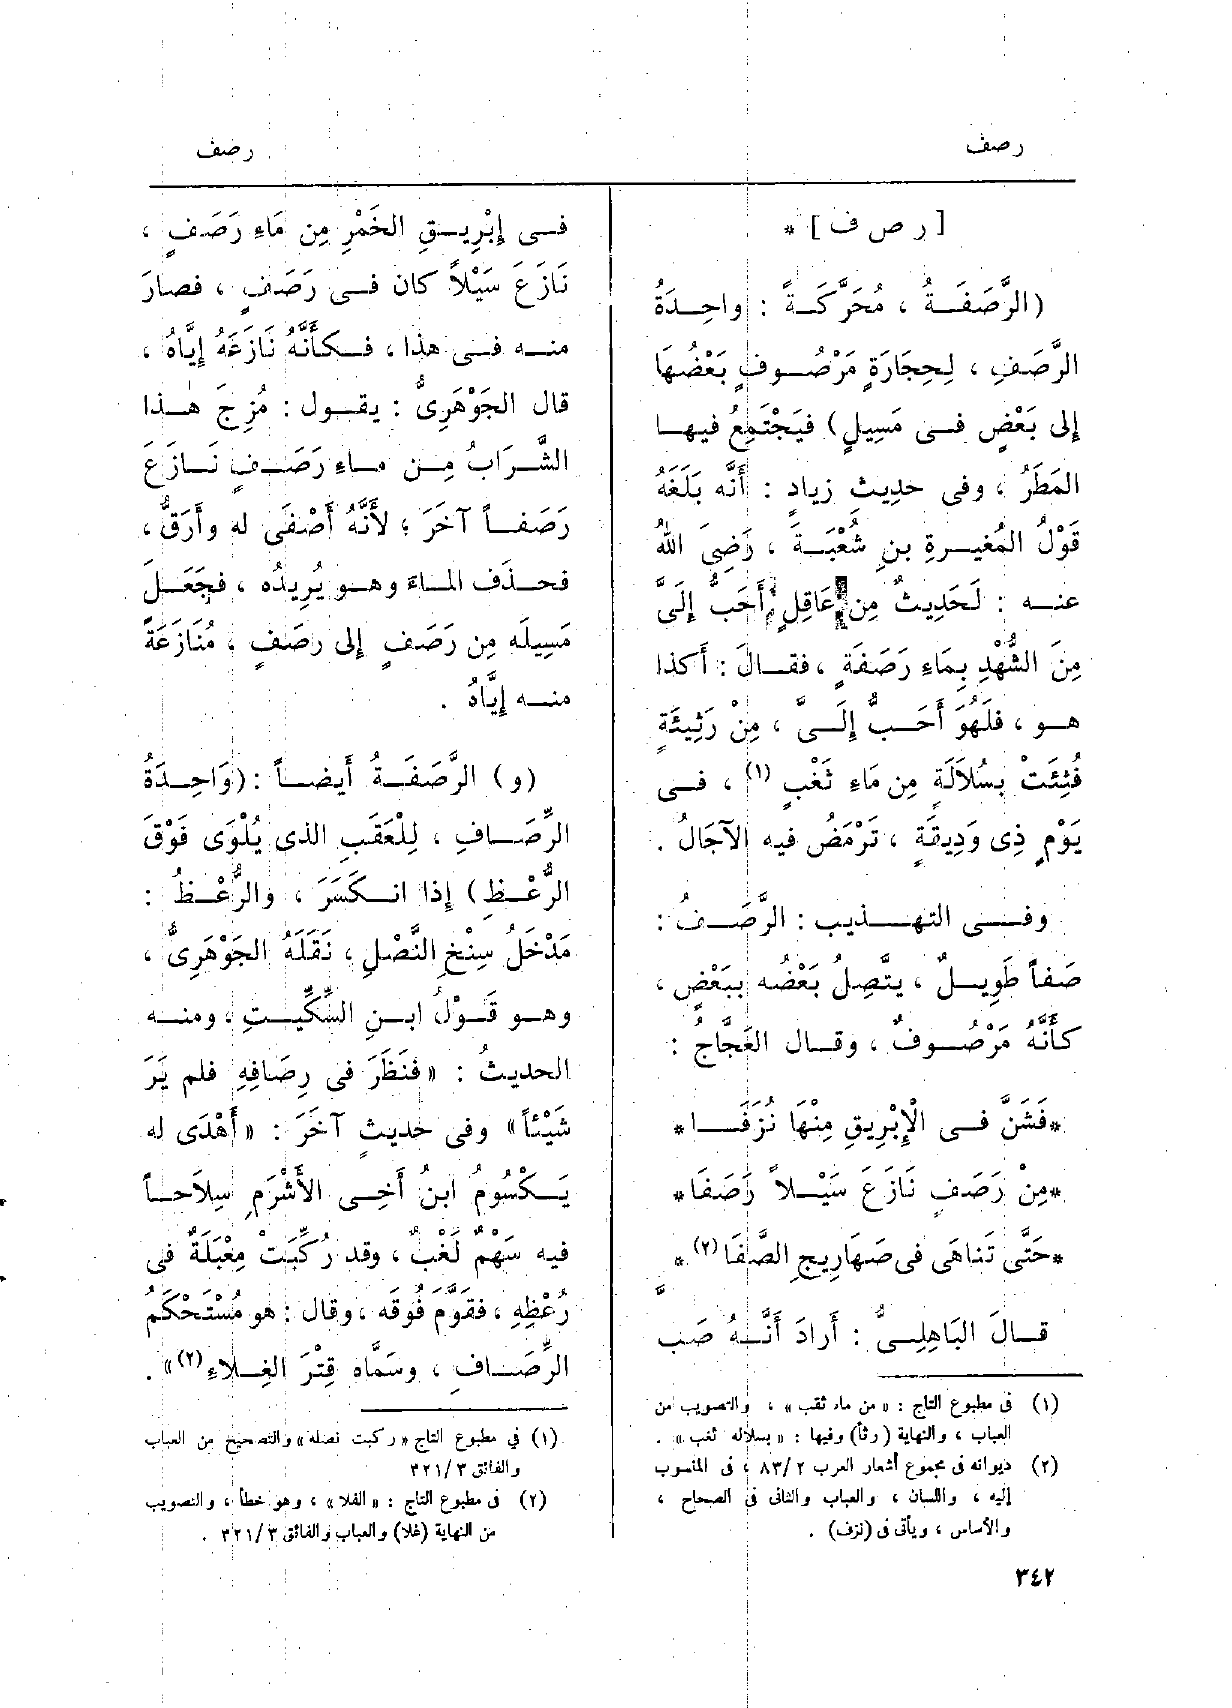 رصف
رصف
[ ر ص ف ] *
(الرَّصَفَةُ ، مُحَرَّكَةً : واحِدَةُ
الرَّصَفِ ، لِحِجَارَةٍ مَرْصُوفٍ بَعْضُهَا
إلى بَعْضٍ فى مَسِيلٍ) فيَجْتَمِعُ فيها
المَطَرُ ، وفى حَدِيثِ زيادٍ : أَنَّه بَلَغَهُ
قَوْلُ المُغيرةِ بنِ شُعْبَةَ ، رَضِىَ اللهُ
عنه : لَحَدِيثٌ مِن عَاقِلٍ أَحَبُّ إِلَىَّ
مِنَ الشُّهْدِ بِمَاءِ رَصَفَةٍ ، فقالَ : أَكذا
هو ، فلَهُوَ أَحَبُّ إِلَىَّ ، مِنْ رَثِيئَةٍ
فُثِئَتْ بِسُلاَلَةٍ مِن مَاءِ ثَغْبٍ (١) ، فى
يَوْمٍ ذِى وَدِيقَةٍ ، تَرْمَضُ فيه الآجَالُ .
وفى التهذيب : الرَّصَفُ :
صَفاً طَوِيلٌ ، يتَّصِلُ بَعْضُه ببَعْضٍ ،
كأَنَّهُ مَرْصُوفٌ ، وقال العَجَّاجُ :
*فَشَنَّ فى الْإِبْرِيقِ مِنْهَا نُزَفَا*
*مِنْ رَصَفٍ نَازَعَ سَيْلاً رَصَفَا*
*حَتَّى تَناهَى فى صَهارِيجِ الصَّفَا (٢) *
قالَ البَاهِلِىُّ : أَرادَ أَنَّهُ صَبَّ
(١) فى مطبوع التاج : « من ماء ثقب » ، والتصويب من
العباب ، والنهاية (رثأ) وفيها : « بسلاله ثغب » .
(٢) ديوانه فى مجموع أشعار العرب ٢ /٨٣ ، فى المنسوب
إليه ، واللسان ، والعباب والثانى فى الصحاح ،
والأساس ، ويأتى فى (نزف) .
٣٤٢
فى إِبْرِيقِ الخَمْرِ مِن مَاءِ رَصَفٍ ،
نَازَعَ سَيْلاً كان فى رَصَفٍ ، فصارَ
منه فى هذا ، فكأَنَّهُ نَازَعَهُ إِيَّاهُ ،
قال الجَوْهَرِىُّ : يقول : مُزِجَ هذا
الشَّرَابُ مِن ماءِ رَصَفٍ نَازَعَ
رَصَفاً آخَرَ ؛ لأَنَّهُ أَصْفَى له وأَرَقُّ ،
فحذَف الماءَ وهو يُرِيدُه ، فجَعَلَ
مَسِيلَه مِن رَصَفٍ إلى رصَفٍ ، مُنَازَعَةً
منه إِيَّاهُ .
(و) الرَّصَفَةُ أَيضاً : (وَاحِدَةُ
الرِّصَافِ ، لِلْعَقَبِ الذى يُلْوَى فَوْقَ
الرُّعْظِ) إِذا انكَسَرَ ، والرُّعْظُ :
مَدْخَلُ سِنْخِ النَّصْلِ ، نَقَلَهُ الجَوْهَرِىُّ ،
وهو قَوْلُ ابنِ السِّكِّيتِ ، ومنه
الحديثُ : « فنَظَرَ فى رِصَافِهِ فلم يَرَ
شَيْئاً » وفى حديثٍ آخَرَ : « أَهْدَى له
يَكْسُومُ ابنُ أَخِى الأَشْرَمِ سِلاَحاً
فيه سَهْمٌ لَغْبٌ ، وقد رُكِّبَتْ مِعْبَلَةٌ فى
رُعْظِهِ ، فقَوَّمَ فُوقَه ، وقال : هو مُسْتَحْكِمُ
الرِّصَافِ ، وسَمَّاه قِتْرَ الغِلاءِ (٢) » .
(١) في مطبوع التاج « ركبت نصله » والتصحيح من العباب
والفائق ٣ /٣٢١
(٢) فى مطبوع التاج : « الفلا » ، وهو خطأ ، والتصويب
من النهاية (غلا) والعباب والفائق ٣ /٣٢١ .